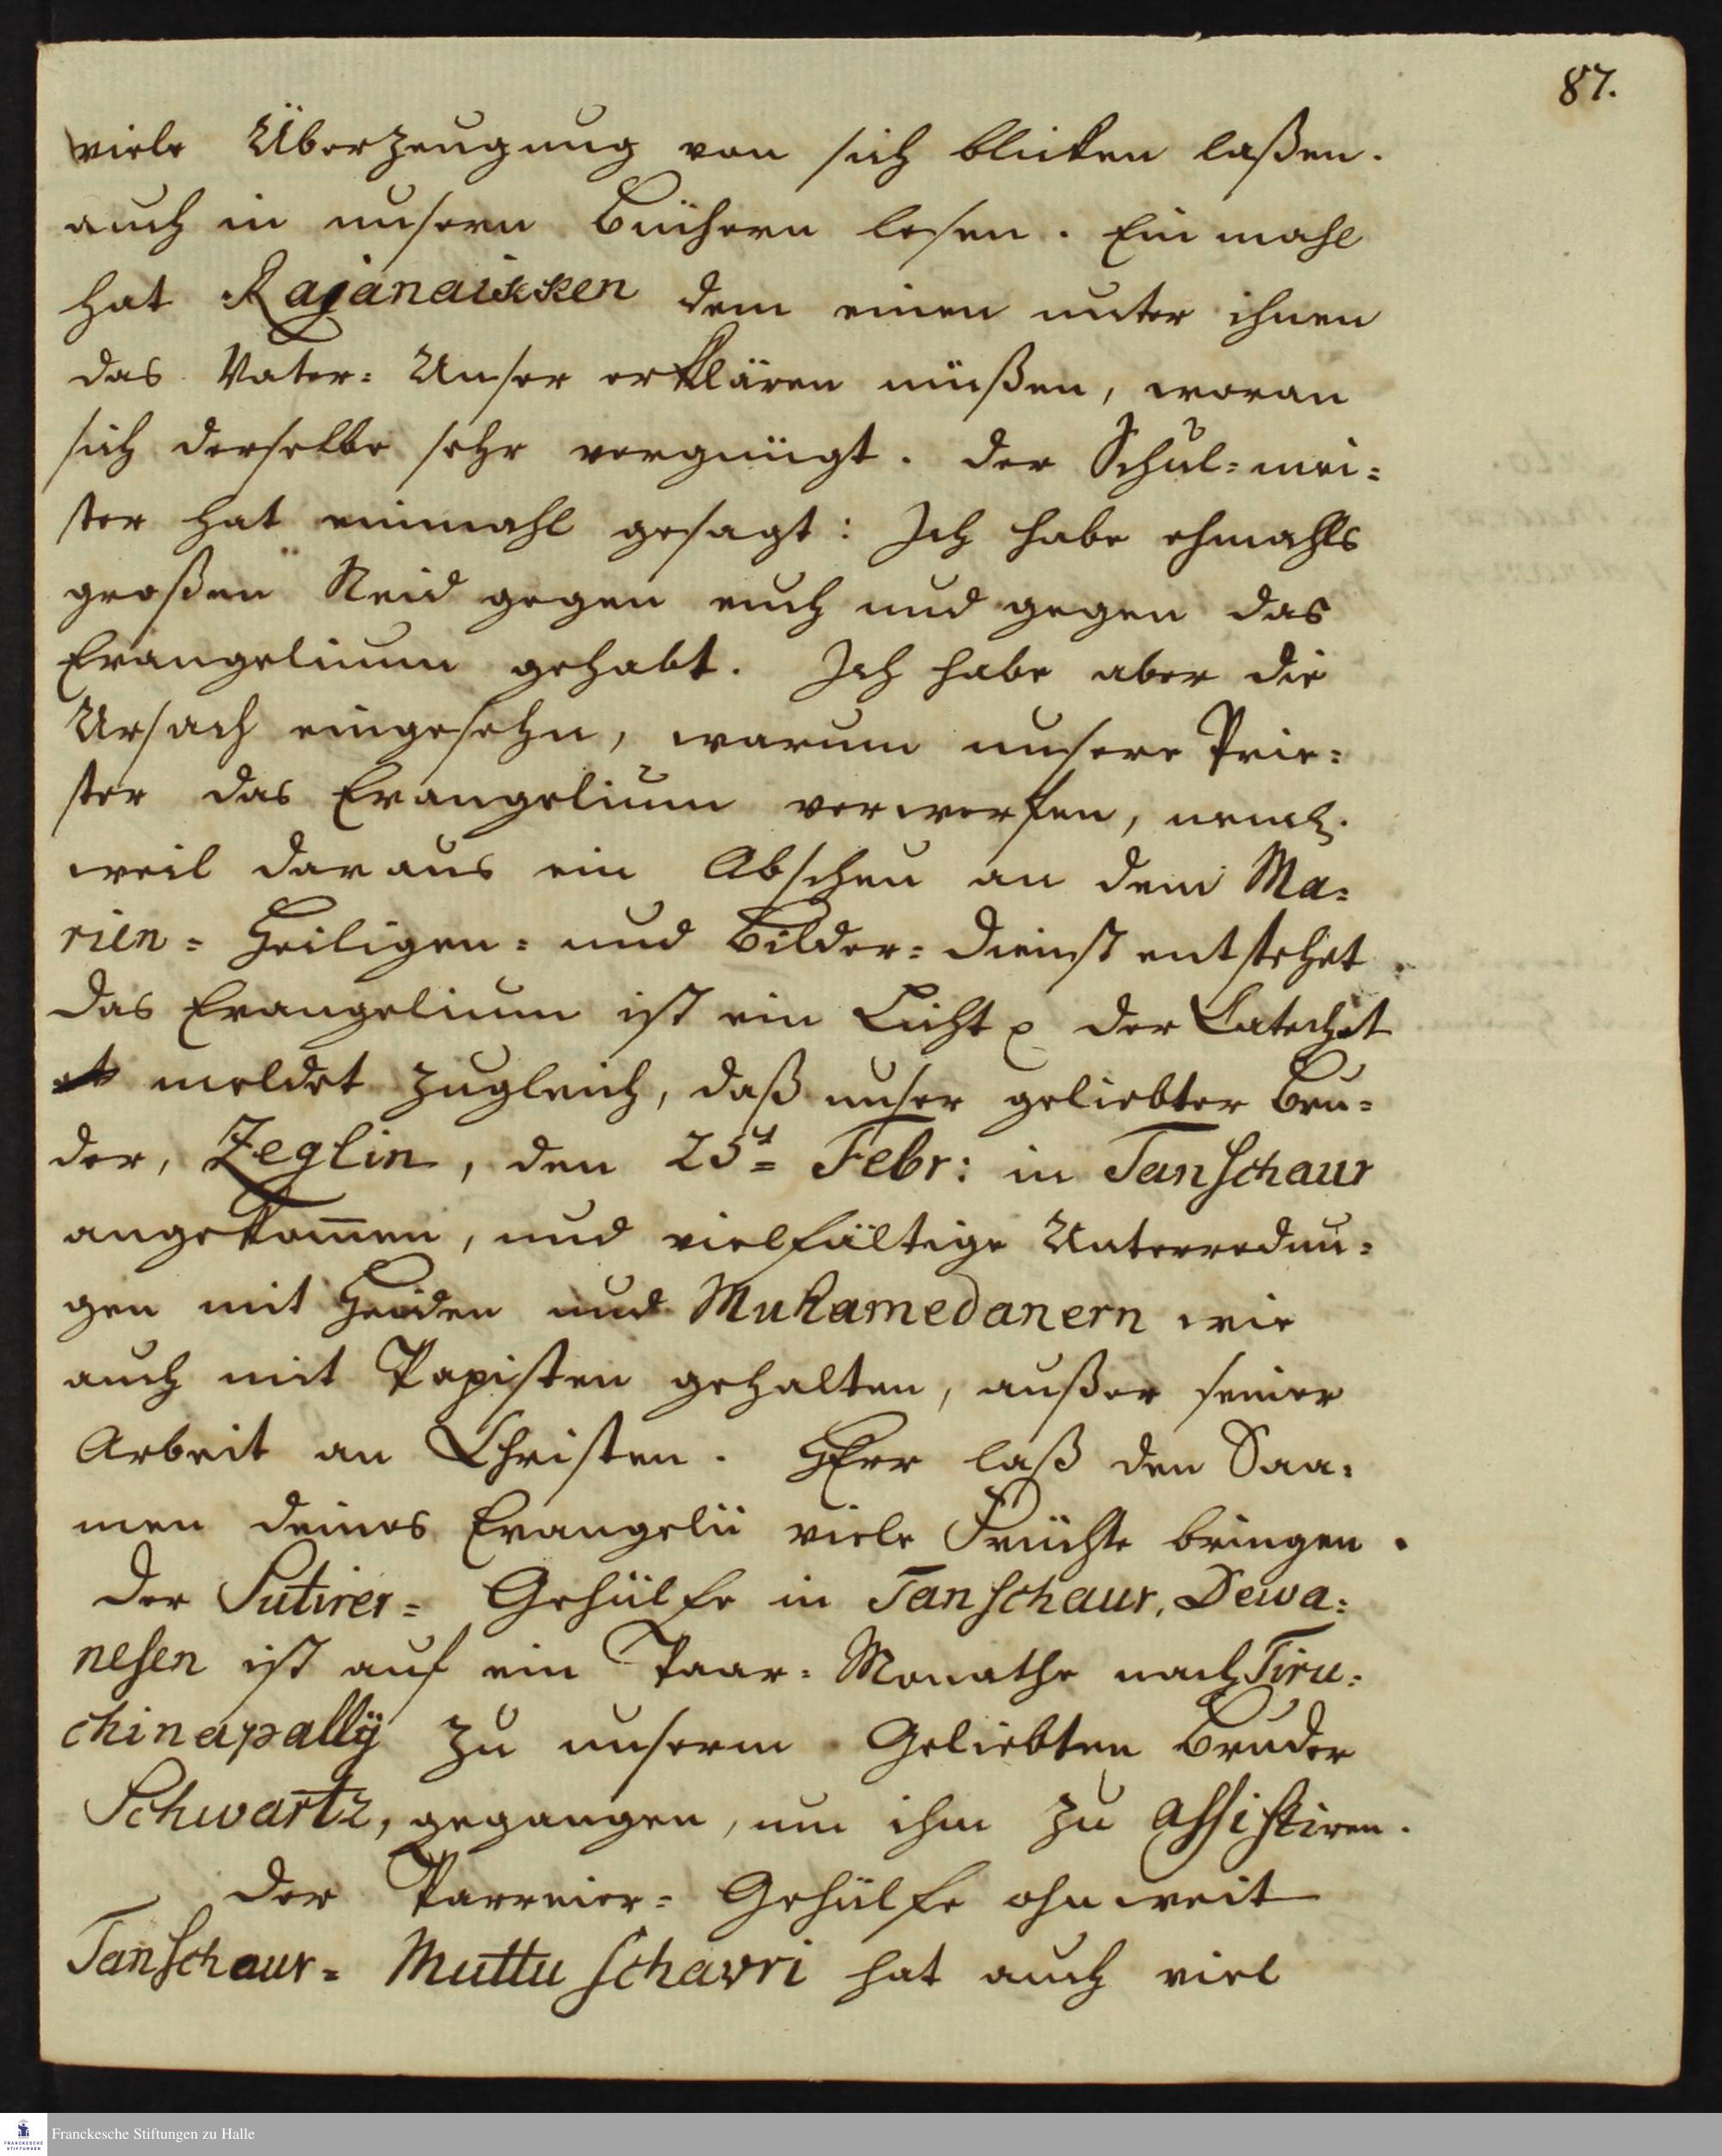 87.
viele Überzeugung von sich blicken laßen.
auch in unsern Büchern lesen. Ein mahl
hat Rajanaikken dem einen unter ihnen
das Vater= Unser erklären müßen, woran
sich derselbe sehr vergnügt. Der Schul=mei=
ster hat einmahl gesagt: Ich habe ehmahls
großen Neid gegen euch und gegen das
Evangelium gehabt. Ich habe aber die
Ursach eingesehn, warum unsere Prie=
ster das Evangelium verwerfen, neml.
weil daraus ein Abscheu an dem Ma=
rien= Heiligen= und Bilder= Dienst entstehet.
Das Evangelium ist ein Licht p Der Catechet
meldet zugleich, daß unser geliebter Bru=
der, Zeglin, den 25t= Febr: in Tanschaur
angekom̅en, und vielfältige Unterredun=
gen mit Heiden und Muhamedanern wie
auch mit Papisten gehalten, außer seiner
Arbeit an Christen. HErr laß den Saa=
men deines Evangelii viele Früchte bringen.
Der Sutirer= Gehülfe in Tanschaur, Dewa=
nesen ist auf ein Paar= Monathe nach Tiru=
chinapally zu unserm Geliebten Bruder
Schwartz, gegangen, um ihm zu assistiren.
Der Parreier= Gehülfe ohnweit
Tanschaur= Muttu schavri hat auch viel
Franckesche Stiftungen zu Halle
FRANCKESCHE
STIFTUNGEN